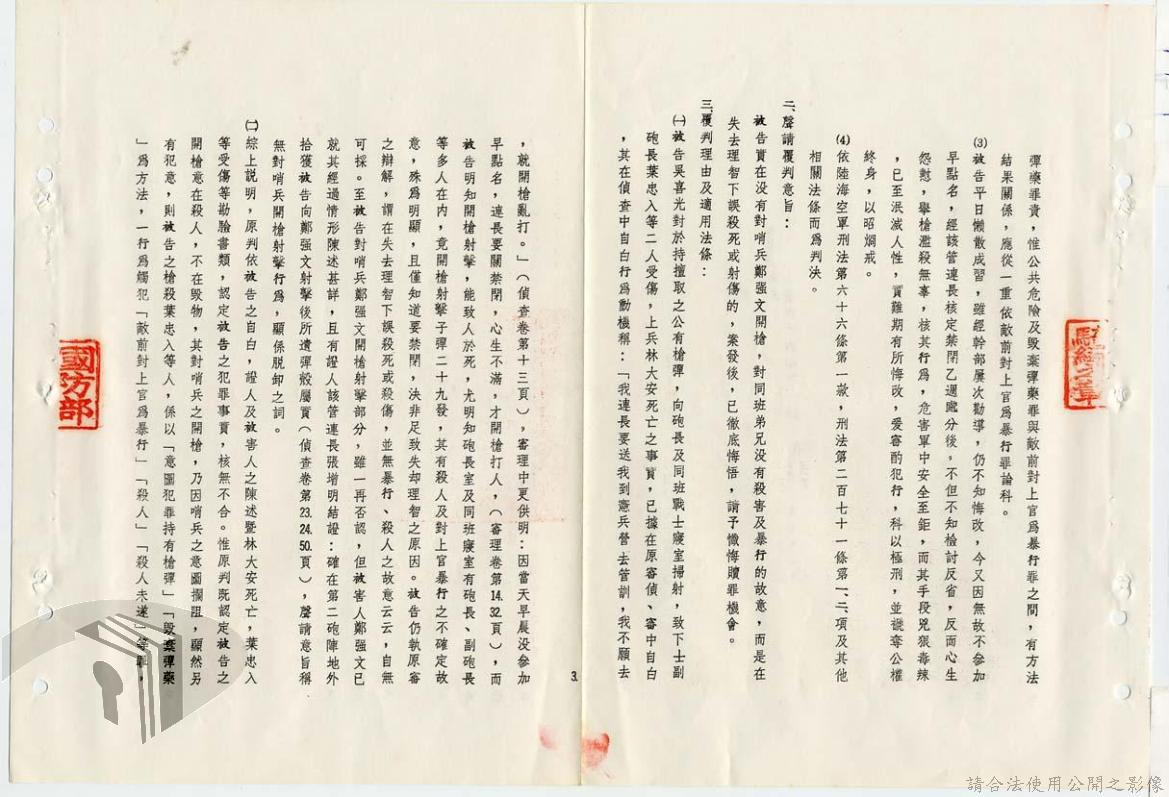 彈藥罪責，惟公共危險及毀棄彈藥罪與敵前對上官為暴行罪之間，有方法
結果關係，應從一重依敵前對上官為暴行罪論科。
⑶被告平日懶散成習，雖經幹部屢次勸導，仍不知悔改，今又因無故不參加
早點名，經該管連長核定禁閉乙週處分後。不但不知檢討反省，反而心生
怨懟，舉槍濫殺無辜，核其行為，危害軍中安全至鉅，而其手段兇狠毒辣
，已至泯滅人性，實難期有所悔改，爰審酌犯行，科以極刑，並褫奪公權
終身，以昭烱戒。
⑷依陸海空軍刑法第六十六條第一款，刑法第二百七十一條第一、二項及其他
相關法條而為判決。
二、聲請覆判意旨：
被告實在没有對哨兵鄭强文開槍，對同班弟兄没有殺害及暴行的故意，而是在
失去理智下誤殺死或射傷的，案發後，已徹底悔悟，請予懺悔贖罪機會。
三、覆判理由及適用法條：
㈠被告吳喜光對於持擅取之公有槍彈，向砲長及同班戰士寢室掃射，致下士副
砲長葉忠入等二人受傷，上兵林大安死亡之事實，已據在原審偵、審中自白
，其在偵查中自白行為動機稱：「我連長要送我到憲兵營去管訓，我不願去
3.
，就開槍亂打。」（偵查卷第十三頁），審理中更供明：因當天早晨没參加
早點名，連長要關禁閉，心生不滿，才開槍打人，（審理卷第14.32.頁），而
被告明知開槍射擊，能致人於死，尤明知砲長室及同班寢室有砲長、副砲長
等多人在內，竟開槍射擊子彈二十九發，其有殺人及對上官暴行之不確定故
意，殊為明顯，且僅知道要禁閉，決非足致失却理智之原因。被告仍執原審
之辯解，謂在失去理智下誤殺死或殺傷，並無暴行、殺人之故意云云，自無
可採。至被告對哨兵鄭强文開槍射擊部分，雖一再否認，但被害人鄭强文已
就其經過情形陳述甚詳，且有證人該管連長張增明結證：確在第二砲陣地外
拾獲被告向鄭强文射擊後所遺彈殼屬實（偵查卷第23.24.50.頁），聲請意旨稱
無對哨兵開槍射擊行為，顯係脱卸之詞。
㈡綜上説明，原判依被告之自白，證人及被害人之陳述暨林大安死亡，葉忠入
等受傷等勘驗書類，認定被告之犯罪事實，核無不合。惟原判既認定被告之
開槍意在殺人，不在毀物，其對哨兵之開槍，乃因哨兵之意圖攔阻，顯然另
有犯意，則被告之槍殺葉忠入等人，係以「意圖犯罪持有槍彈」「毀棄彈藥
」為方法，一行為觸犯「敵前對上官為暴行」「殺人」「殺人未遂」等罪，
國防部
騎縫之章
請合法使用公開之影像